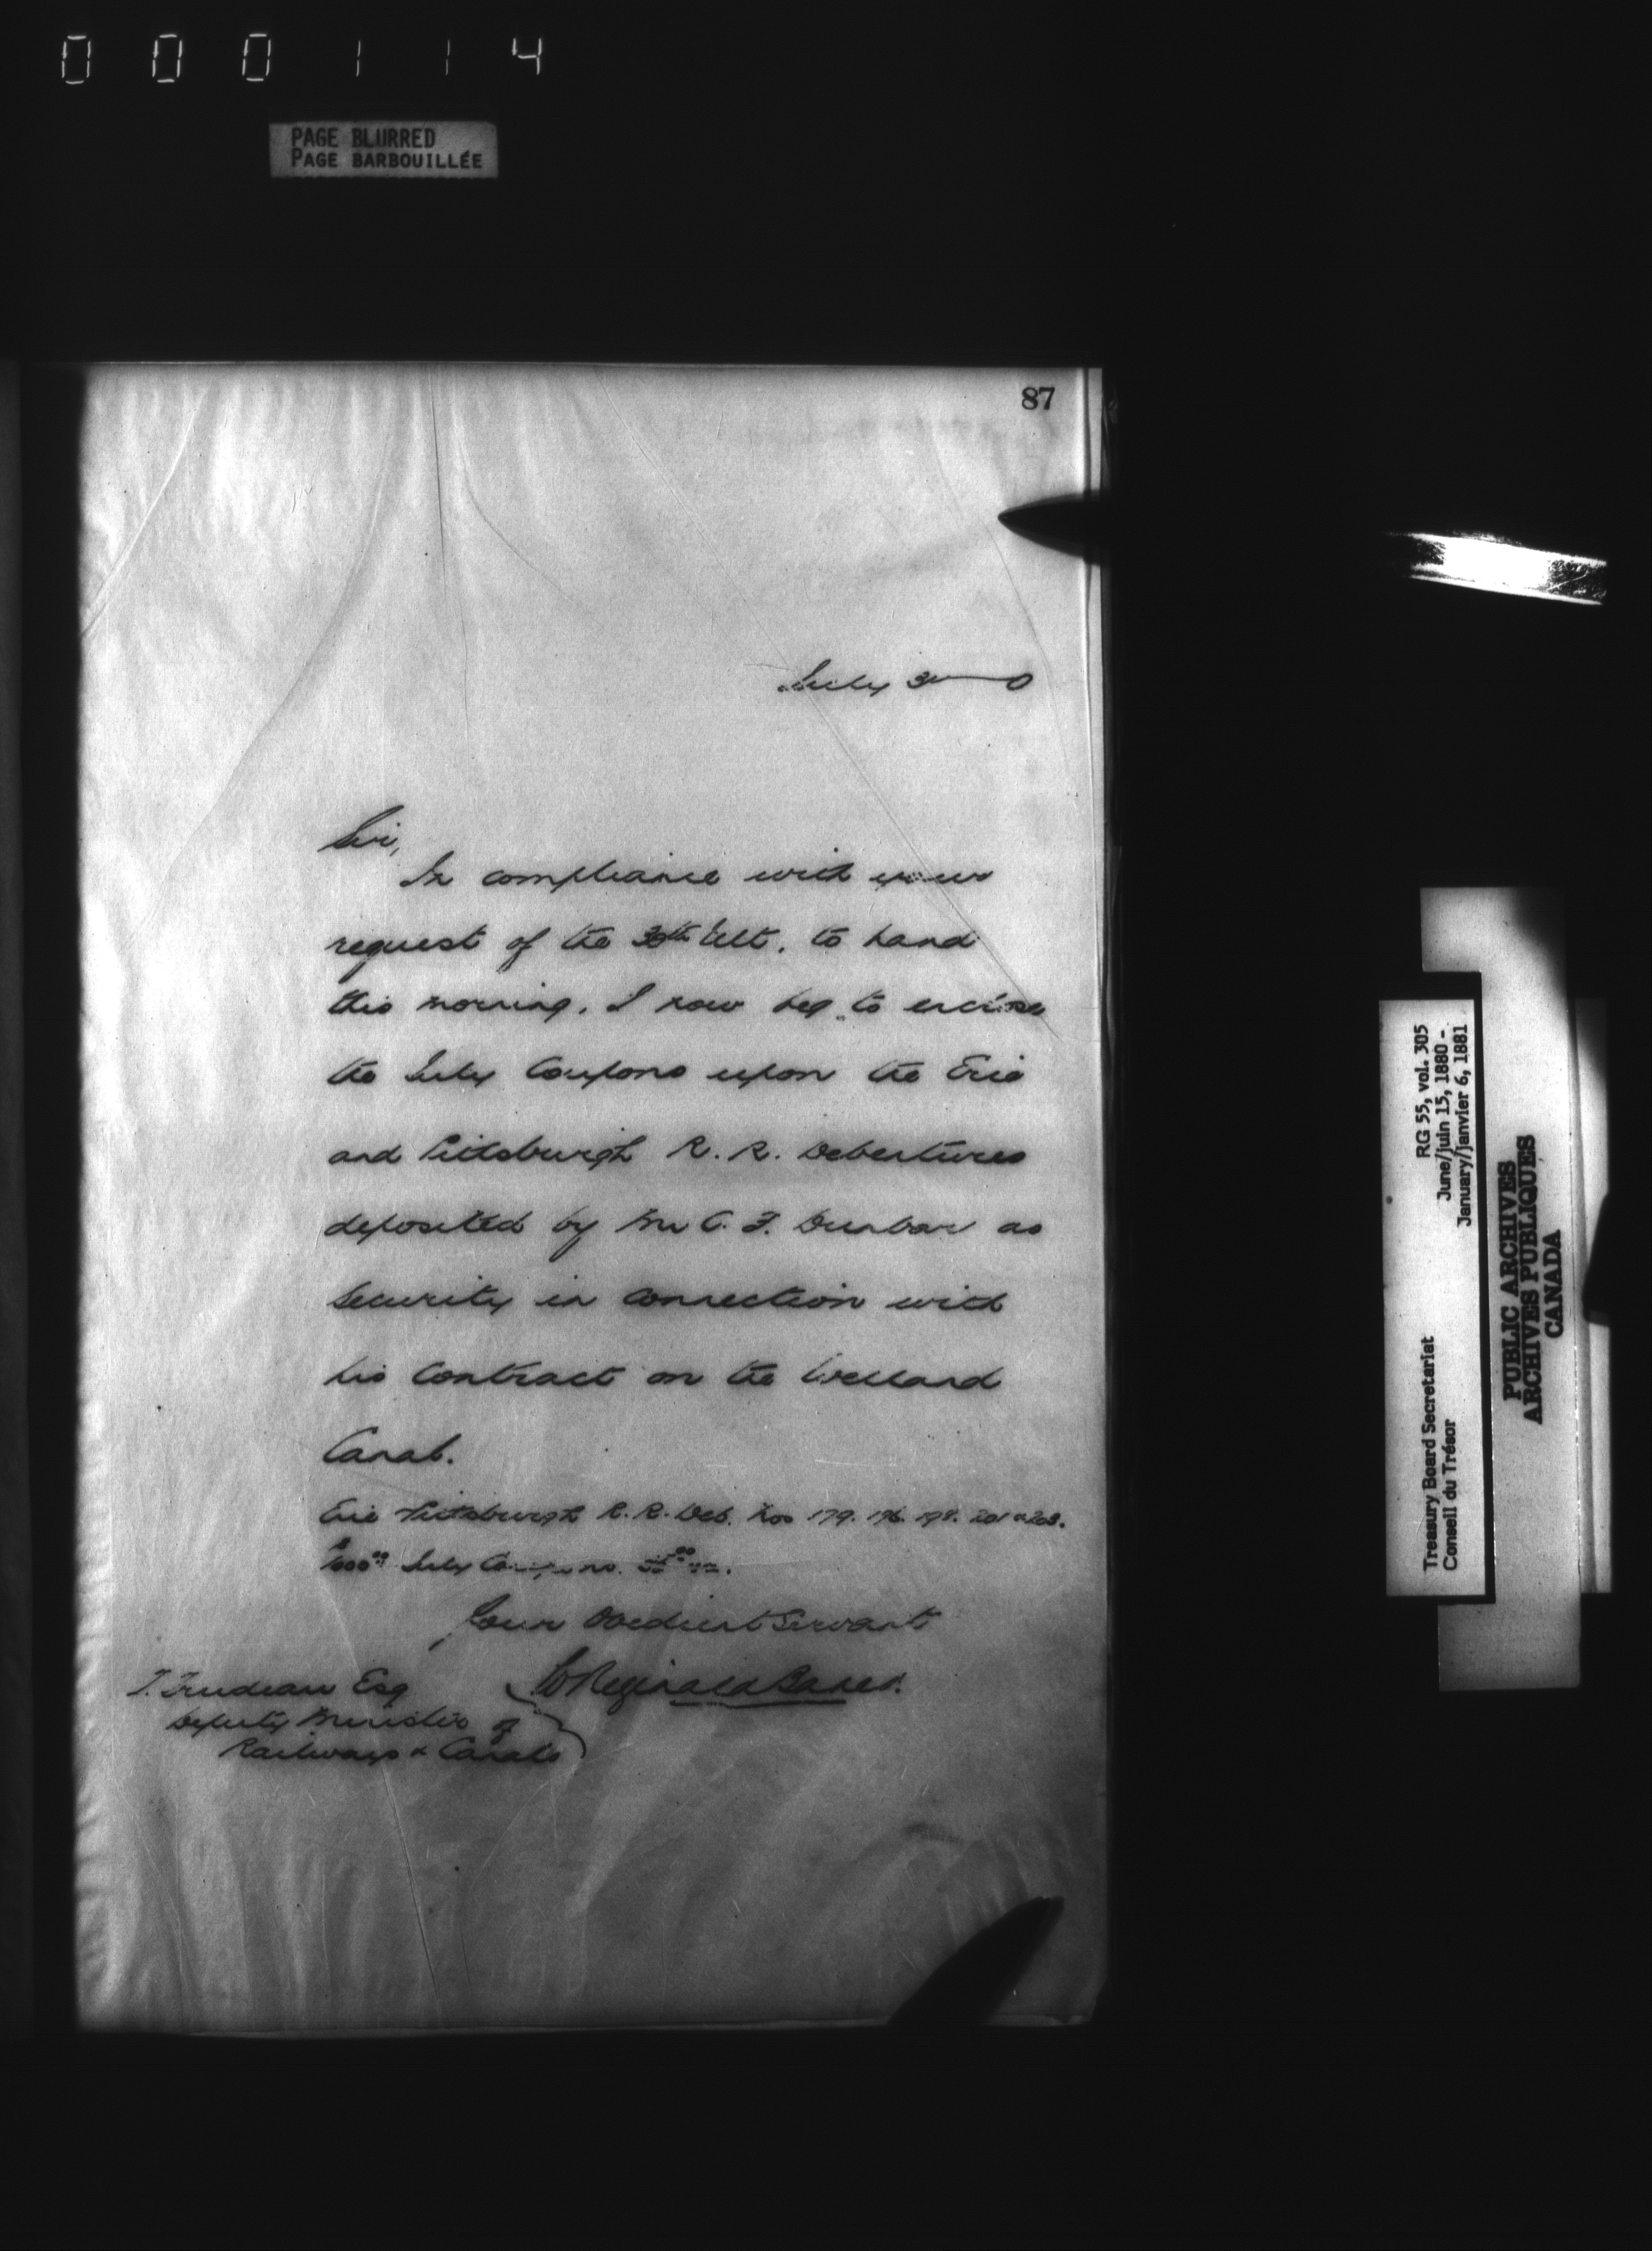 000114
PAGE BLURRED
PAGE BARBOUILLÉE
87
July 3
Sir,
In compliance with your
request of the 30th Ult. to hand
this morning, I now beg to enclose
the July Coupons upon the Erie
and Pittsburgh R. R. Debentures
deposited by Mr C. F. Dunbar as
Security in connection with
his Contract on the Welland
Canal.
Erie & Pittsburgh R. R. Deb. Nos 179. 196. 198. 201 & 203.
$1000.00 July Coupons.
Your Obedient Servant
C Reginald Baker.
T. Trudeau Esq
Deputy Minister of
Railways & Canals
RG 55, vol. 305
June/juin 15, 1880 -
January/janvier 6, 1881
Treasury Board Secretariat
Conseil du Trésor
PUBLIC ARCHIVES
ARCHIVES PUBLIQUES
CANADA